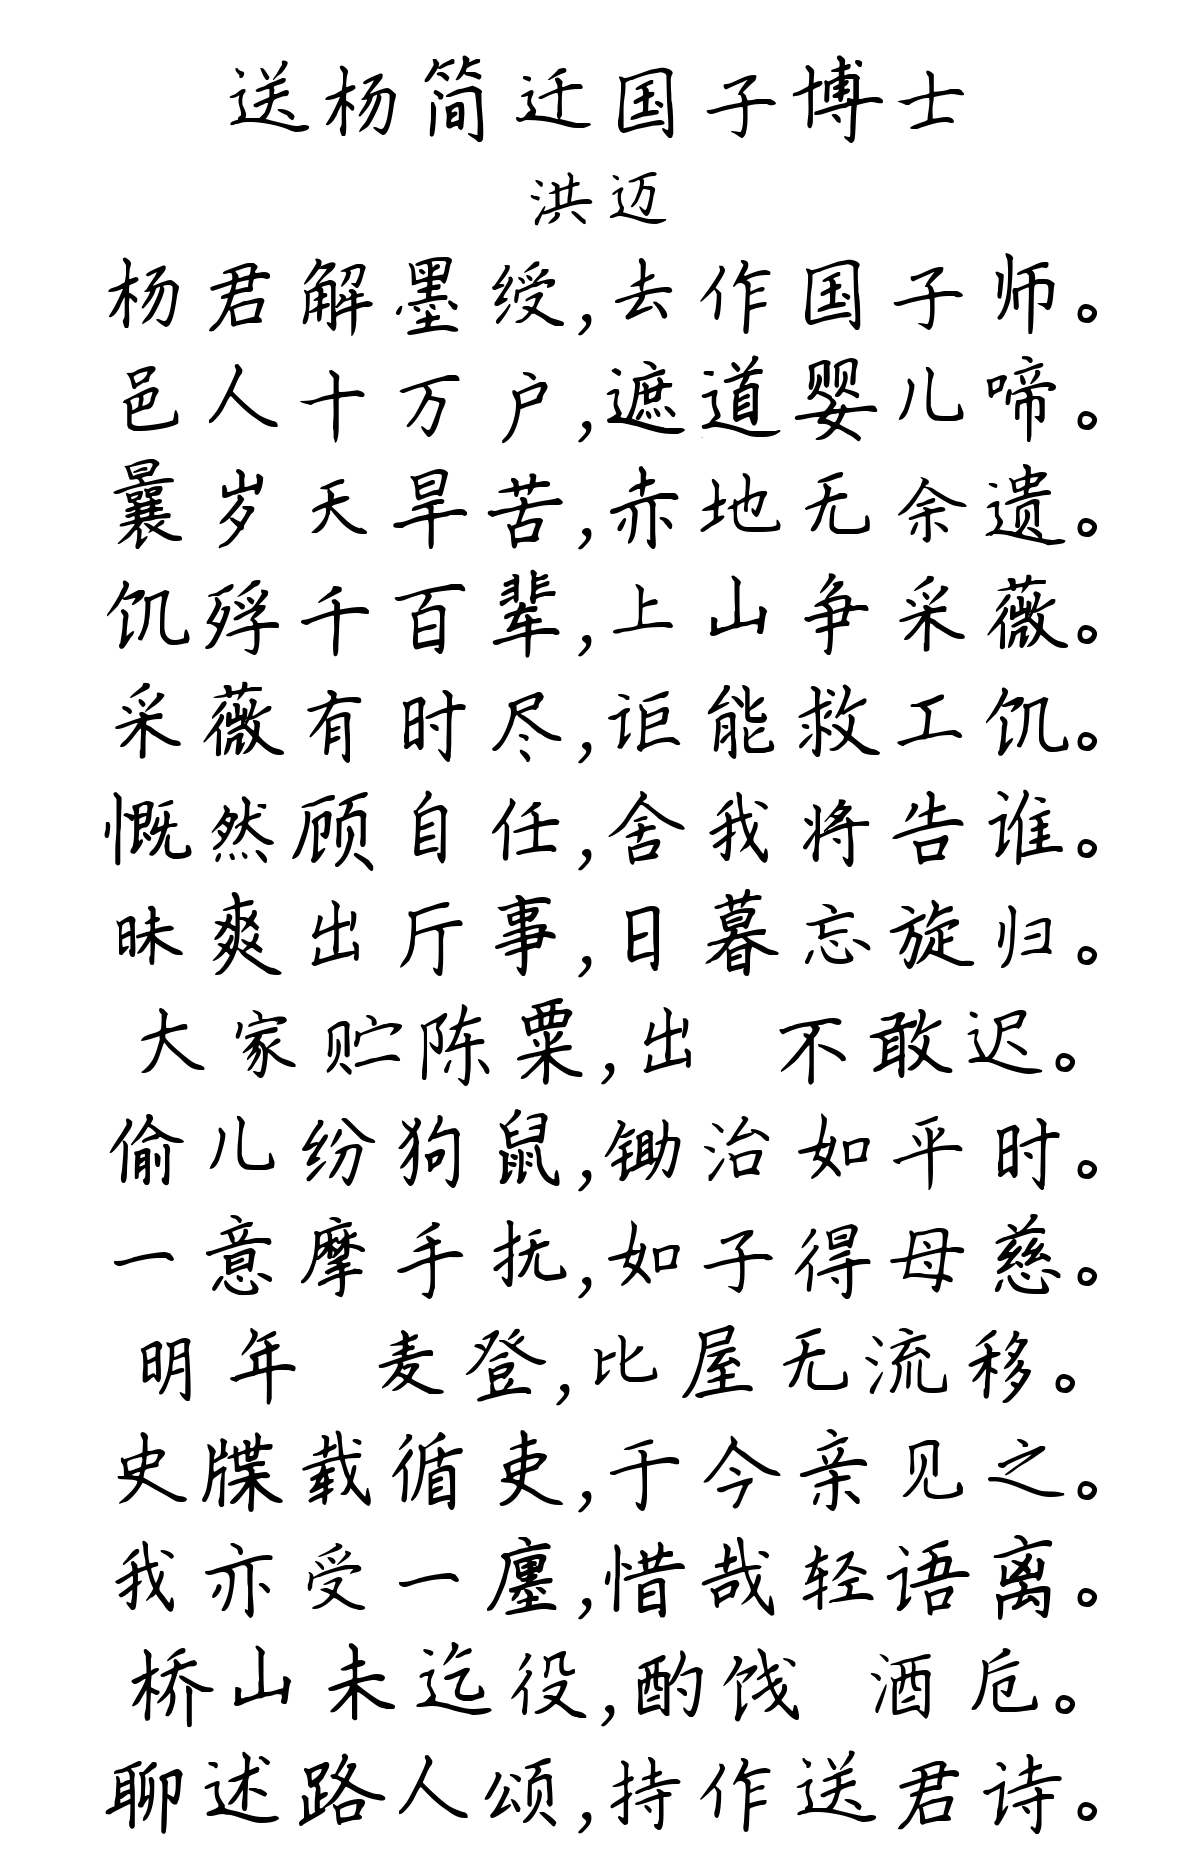 送杨简迁国子博士
洪迈
杨君解墨绶,去作国子师。
邑人十万户,遮道婴儿啼。
曩岁天旱苦,赤地无余遗。
饥殍千百辈,上山争采薇。
采薇有时尽,讵能救工饥。
慨然顾自任,舍我将告谁。
昧爽出厅事,日暮忘旋归。
大家贮陈粟,出 不敢迟。
偷儿纷狗鼠,锄治如平时。
一意摩手抚,如子得母慈。
明年 麦登,比屋无流移。
史牒载循吏,于今亲见之。
我亦受一廛,惜哉轻语离。
桥山未迄役,酌饯 酒卮。
聊述路人颂,持作送君诗。